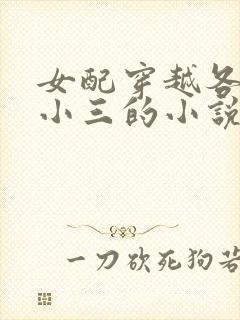 女配穿越各
小三的小说
一刀砍死狗若